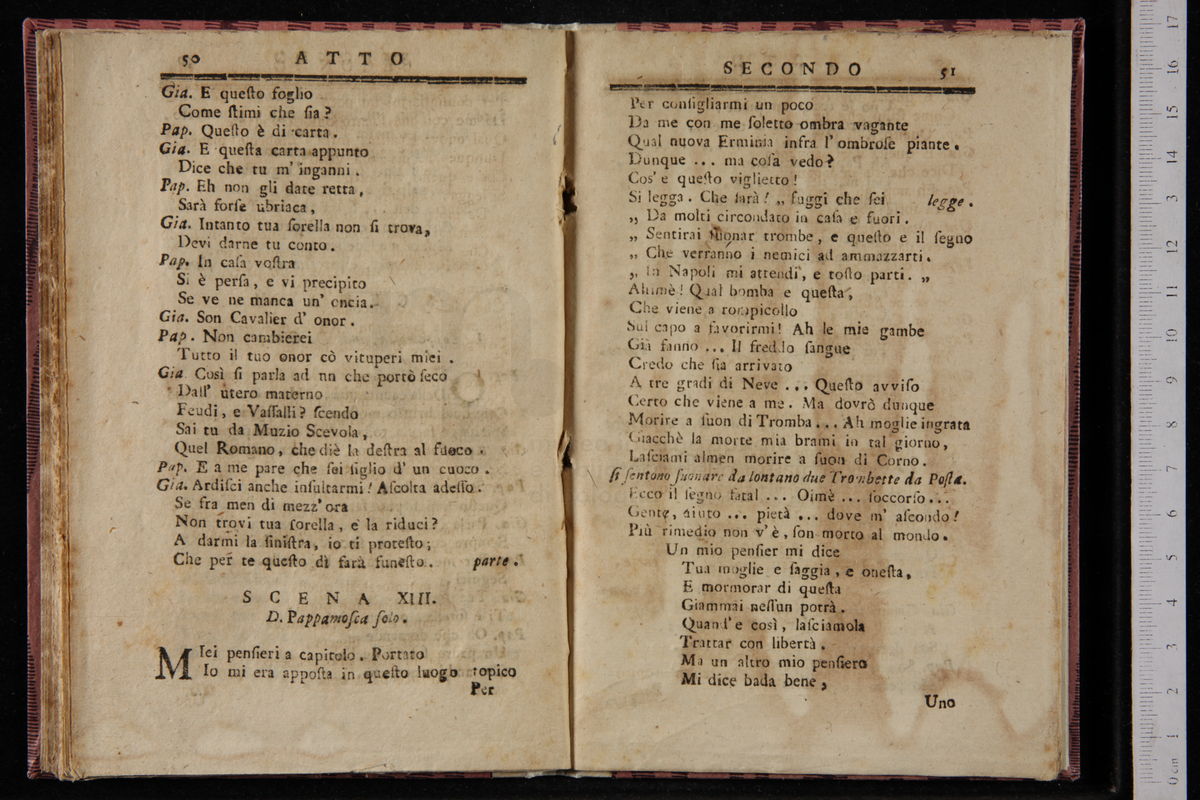 50 ATTO
Gia. E queſto foglio
Come ſtimi che ſia?
Pap. Queſto è di carta.
Gia. E queſta carta appunto
Dice che tu m' inganni.
Pap. Eh non gli date retta,
Sarà forſe ubriaca,
Gia. Intanto tua ſorella non ſi trova,
Devi darne tu conto.
Pap. In caſa voſtra
Si è perſa, e vi precipito
Se ve ne manca un' oncia.
Gia. Son Cavalier d' onor.
Pap. Non cambierei
Tutto il tuo onor cò vituperi miei.
Gia Così ſi parla ad nn che portò ſeco
Dall' utero materno
Feudi, e Vaſſalli? ſcendo
Sai tu da Muzio Scevola,
Quel Romano, che diè la deſtra al fuoco.
Pap. E a me pare che ſei figlio d' un cuoco.
Gia. Ardiſci anche inſultarmi! Aſcolta adeſſo.
Se fra men di mezz' ora
Non trovi tua ſorella, e la riduci?
A darmi la ſiniſtra, io ti proteſto;
Che per te queſto dì ſarà funeſto. parte.
SCENA XIII.
D. Pappamoſca ſolo.
MIei penſieri a capitolo. Portato
Io mi era appoſta in queſto luogo topico
Per
SECONDO 51
Per conſigliarmi un poco
Da me con me ſoletto ombra vagante
Qual nuova Erminia infra l' ombroſe piante.
Dunque ... ma coſa vedo?
Cos' e queſto viglietto!
Si legga. Che ſarà! „ fuggi che ſei legge.
„ Da molti circondato in caſa e fuori.
„ Sentirai ſuonar trombe, e queſto e il ſegno
„ Che verranno i nemici ad ammazzarti.
„ In Napoli mi attendi, e toſto parti. „
Ahimè! Qual bomba e queſta,
Che viene a rompicollo
Sul capo a favorirmi! Ah le mie gambe
Già fanno ... Il freddo ſangue
Credo che ſia arrivato
A tre gradi di Neve ... Queſto avviſo
Certo che viene a me. Ma dovrò dunque
Morire a ſuon di Tromba ... Ah moglie ingrata
Giacchè la morte mia brami in tal giorno,
Laſciami almen morire a ſuon di Corno.
ſi ſentono ſuonare da lontano due Trombette da Poſta.
Ecco il ſegno fatal ... Oimè ... ſoccorſo...
Gente, aiuto ... pietà ... dove m' aſcondo!
Più rimedio non v' è, ſon morto al mondo.
Un mio penſier mi dice
Tua moglie e ſaggia, e oneſta,
E mormorar di queſta
Giammai neſſun potrà.
Quand' e così, laſciamola
Trattar con libertà.
Ma un altro mio penſiero
Mi dice bada bene,
Uno
17
16
15
14
3
12
11
10
9
8
7
6
5
4
3
2
1
0 cm